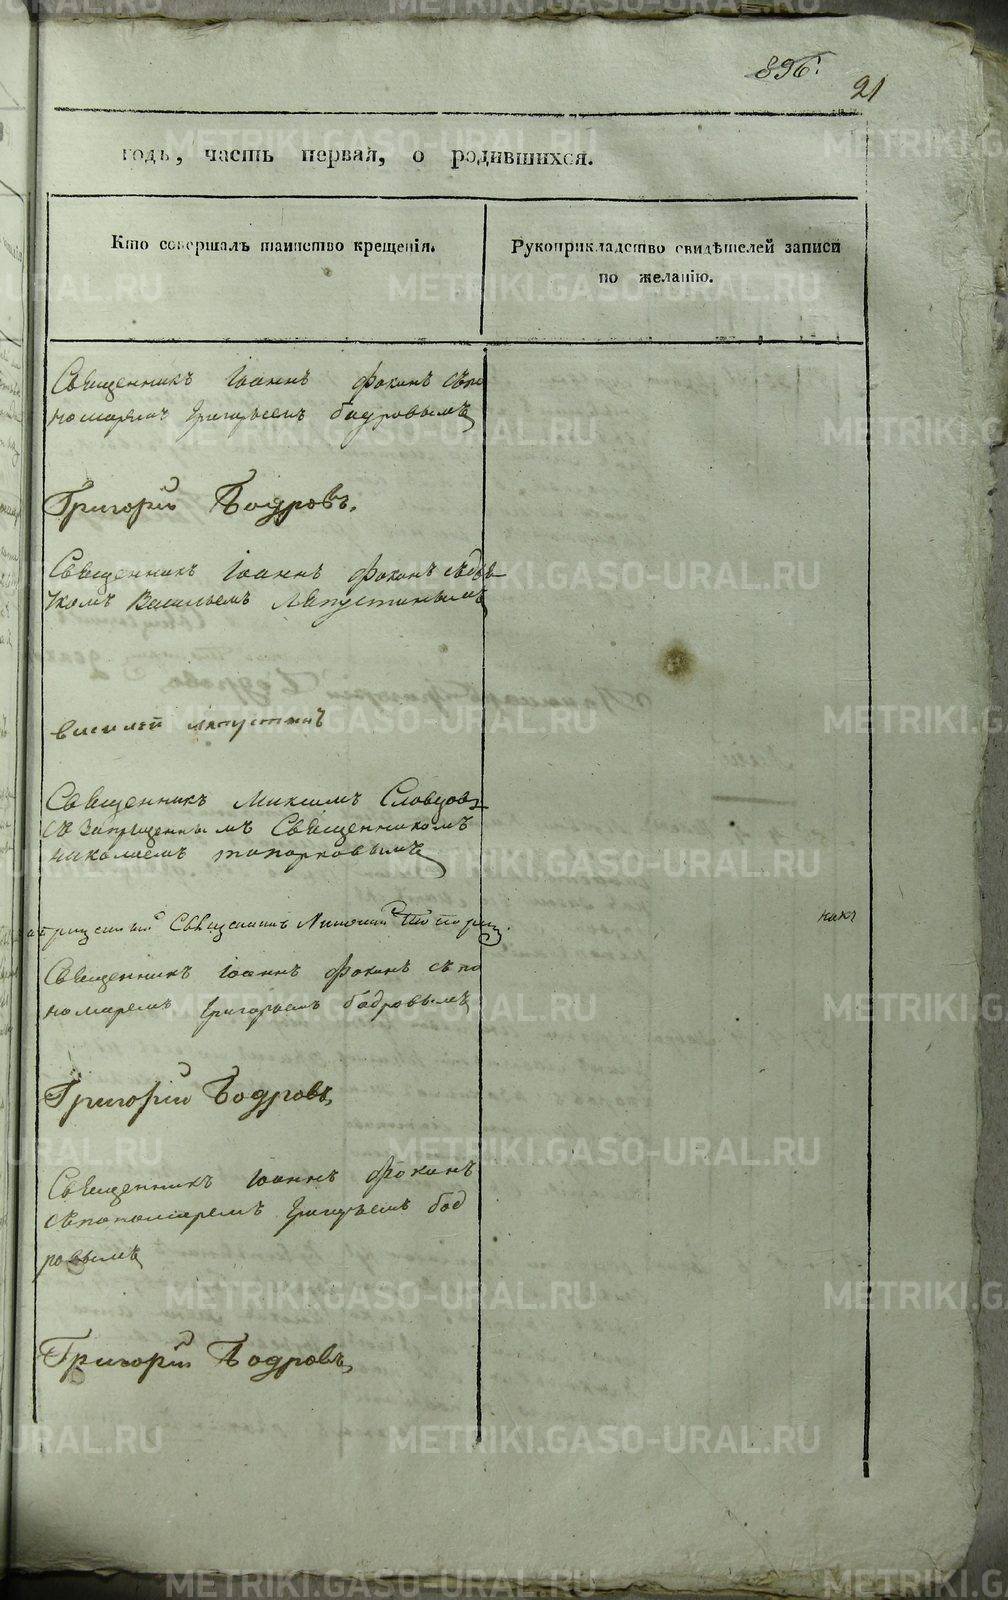 896.
21
годъ, часть первая, о родившихся.
Кто совершалъ таинство крещенія.
Рукоприкладство свидѣтелей записи
по желанію.
Священникъ Іоаннъ Фокинъ съ по
номаремъ Григорьемъ бодровымъ
Григорій Бодровъ.
Священникъ Іоаннъ Фокинъ съ дья
чкомъ Васильемъ Лапустинымъ
василей лапустинъ
Священникъ Максимъ Словцовъ
съ Запрещеннымъ Священникомъ
николаемъ топорковымъ
Священникъ
Священникъ Іоаннъ Фокинъ съ по
номаремъ Григорьемъ бодровымъ
Григорій Бодровъ,
Священникъ Іоаннъ Фокинъ
съ пономаремъ Григорьемъ бод
ровымъ
Григорій Бодровъ,
METRIKI.GASO-URAL.RU